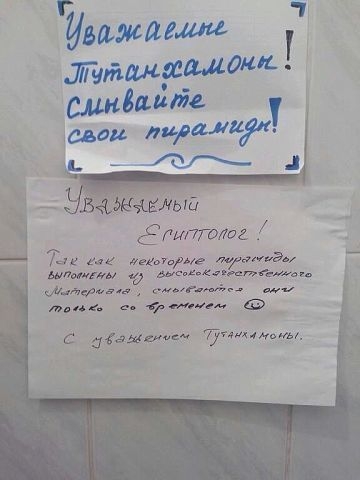 Уважаемые
Тутанхамоны!
смывайте
свои пирамиды!
Уважаемый
Египтолог!
Так как некоторые пирамиды
выполнены из высококачественного
материала, смываются они
только со временем ☺
С уважением Тутанхамоны.